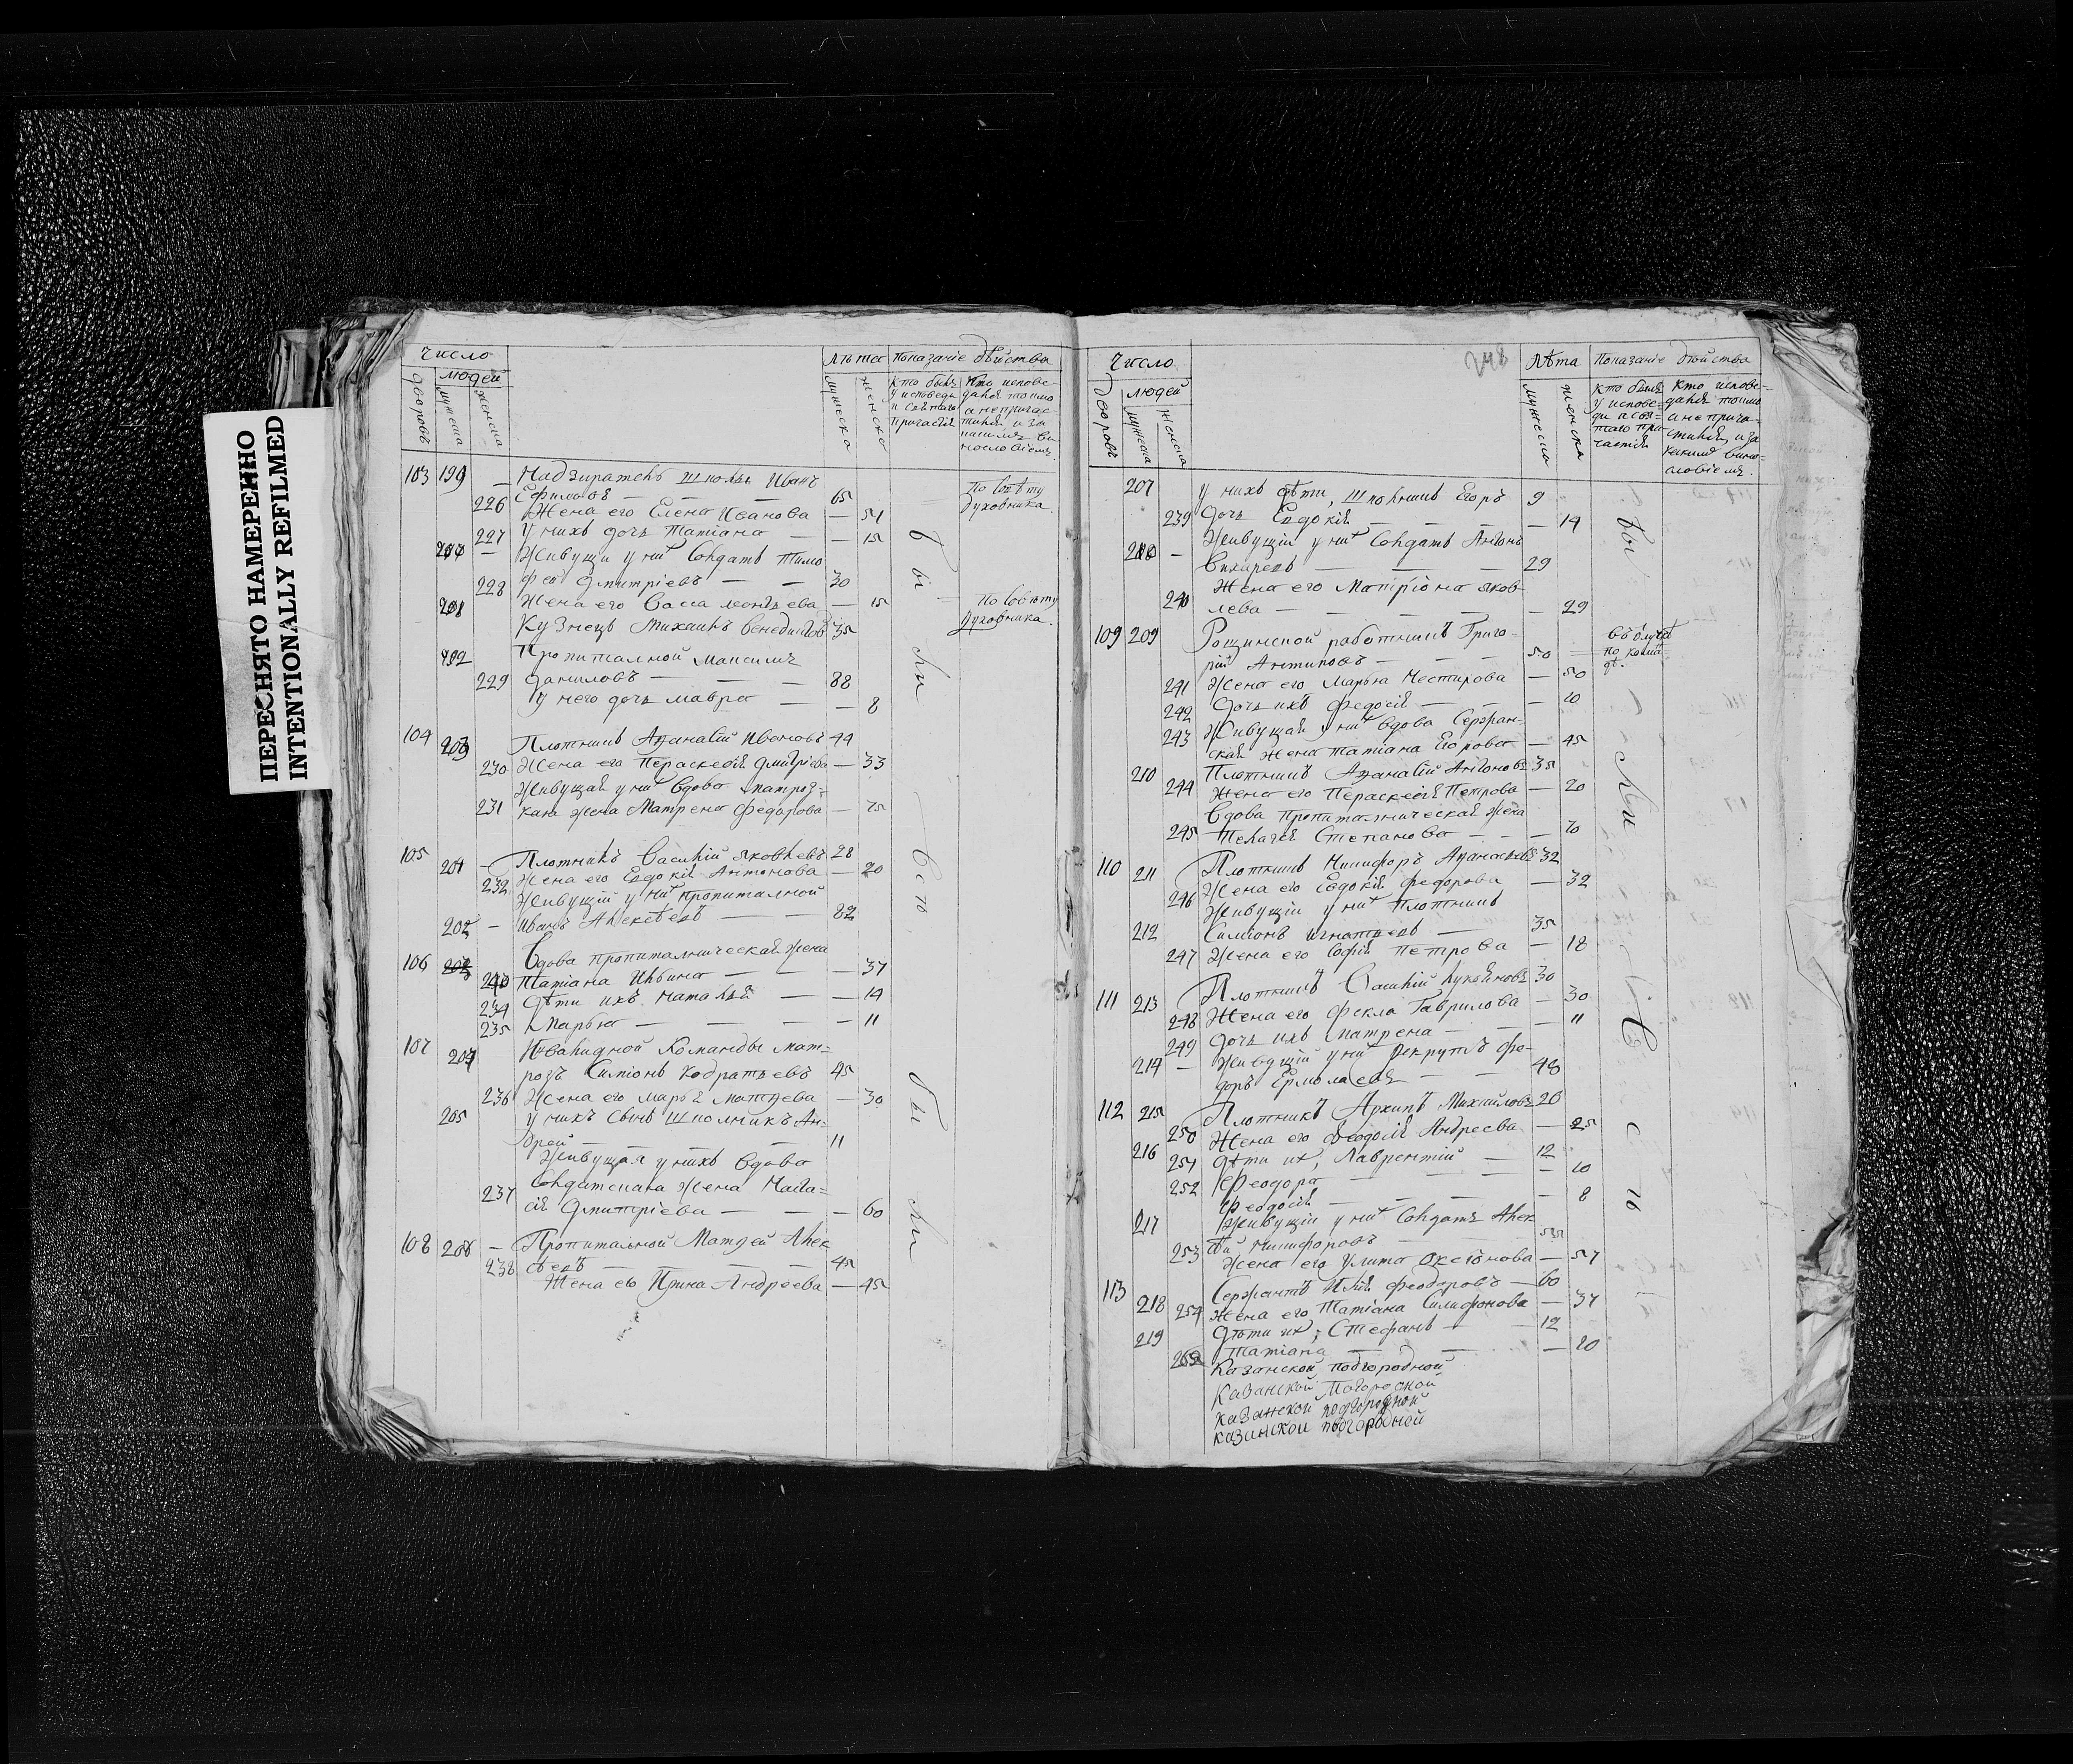 ПЕРЕСНЯТО НАМЕРЕННО
INTENTIONALLY REFILMED
Число
людей
дворовъ
мужеска
женска
лѣта
мужеска
женско
показание действа
кто былъ
у исповеди
и святаго
причастия
Кто испове-
дался токмо
а непричас-
тился, и за
каким ви-
нословіемъ.
103 199 — Надзиратель школы Иванъ
Ефимовъ — — — 65
По совѣту
духовника.
226 Жена его Елена Иванова — 51
227 у нихъ дочь Татіана — — 15
200 — Живущи у них Солдатъ Тимо
фей Дмитріевъ — — 30
228 Жена его Васса леонтьева — 15
201 Кузнецъ Михаилъ 35
По совѣту
духовника.
202 Пропиталной Максимъ
Даниловъ — — — 88
229 У него дочь мавра — — 8
104 203 Плотникъ Аѳанасій Ивановъ 44
230 Жена его Пераскевія Дмитріева — 33
Живущая у них вдова матроз-
231 кая жена Матрена Федорова — 75
105 201 — Плотникъ Василій Яковлевъ 28
232 Жена его Евдокія Антонова — 20
Живущій у них пропиталной
202 — Иванъ Алексѣевъ — — 82
106 203 Вдова пропиталническая жена
Татіана Ильина — — — 37
234 Дѣти ихъ Наталья — — 14
235 Марѳа — — — — 11
107 204 Инвалидной Команды мат-
розъ Симіонъ Кодратьевъ 45
236 Жена его Марѳа матѳеева — 30
205 у нихъ сынъ школникъ Ан-
дрей — — — — 11
Живущая у нихъ вдова
237 Солдатская жена Наста-
сія Дмитріева — — — 60
108 206 — Пропитальной Матѳей Алек
сѣевъ — — — 45
238 Жена его Ирина Андреева — 45
бы
ли
Всѣ
бы
ли
248
Число
людей
дворовъ
мужеска
женска
Лѣта
мужеска
женска
Показаніе действа
кто былъ
у испове-
ди и свя-
таго при-
частія
Кто испове-
дался токмо
а не прича-
стился, и за
какимъ вино-
словіемъ.
207 у нихъ дѣти, школникъ Егоръ 9
239 Дочь Евдокія — — — 14
208 — Живущій у них Солдатъ Антонъ
Вихаревъ — — — 29
240 Жена его Матріона яков-
лева — — — — 29
109 209 Рощинской работникъ Григо-
рій Антиповъ — — — 50
241 Жена его Марья Нестирова — 50
242 Дочь ихъ Федосія — — — 10
243 Живущая у них вдова Сержан-
ская жена татіана Егорова — 45
210 Плотникъ Аѳанасій Антоновъ 35
244 Жена его Пераскевія Петрова — 20
Вдова пропиталническая жена
245 Пелагея Степанова — — — 70
110 211 Плотникъ Никифоръ Аѳанасьевъ 32
246 Жена его Евдокія Федорова — 32
Живущій у них Плотникъ
212 Симіонъ Игнатьевъ — 35
247 Жена его Софія петрова — 18
111 213 Плотникъ Василій Лукояновъ 30
248 Жена его Фекла Гаврилова — 30
249 Дочь ихъ Матрена — — — 11
214 — Живущій у них рекрутъ Фе-
доръ Ермолаевъ — — 48
112 215 Плотникъ Архипъ Михайловъ 26
250 Жена его Феодосія Андреева — 25
216 Дѣти их, Лаврентій — 12
251 Феодора — — — 10
252 Феодосія — — — 8
217 Живущій у них Солдатъ Алек
сѣй Никифоровъ — 55
253 Жена его Улита — 57
113 218 Сержантъ Илія Феодоровъ — 60
254 Жена его Татіана — 37
219 Дѣти их, Стефанъ — 12
Татіана — — — 20
Казанской подгородной
Казанской
казанской подгородной
казанской подгородной